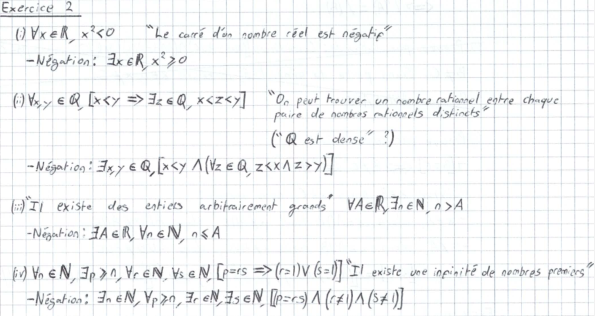 Exercice 2
(i) ∀x∈ℝ, x²<0 "Le carré d'un nombre réel est négatif"
-Négation: ∃x∈ℝ, x²⩾0
(ii) ∀x,y ∈ ℚ, [x<y => ∃z ∈ ℚ, x<z<y] "On peut trouver un nombre rationnel entre chaque
paire de nombres rationnels distincts"
("ℚ est dense" ?)
-Négation: ∃x,y ∈ ℚ, [x<y ∧ (∀z ∈ ℚ, z<x ∧ z>y)]
(iii) "Il existe des entiers arbitrairement grands" ∀A∈ℝ, ∃n∈ℕ, n>A
-Négation: ∃A∈ℝ, ∀n∈ℕ, n⩽A
(iv) ∀n∈ℕ, ∃p⩾n, ∀r∈ℕ, ∀s∈ℕ, [p=rs => (r=1)∨(s=1)] "Il existe une infinité de nombres premiers"
-Négation: ∃n∈ℕ, ∀p⩾n, ∃r∈ℕ, ∃s∈ℕ, [(p=rs) ∧ (r≠1) ∧ (s≠1)]